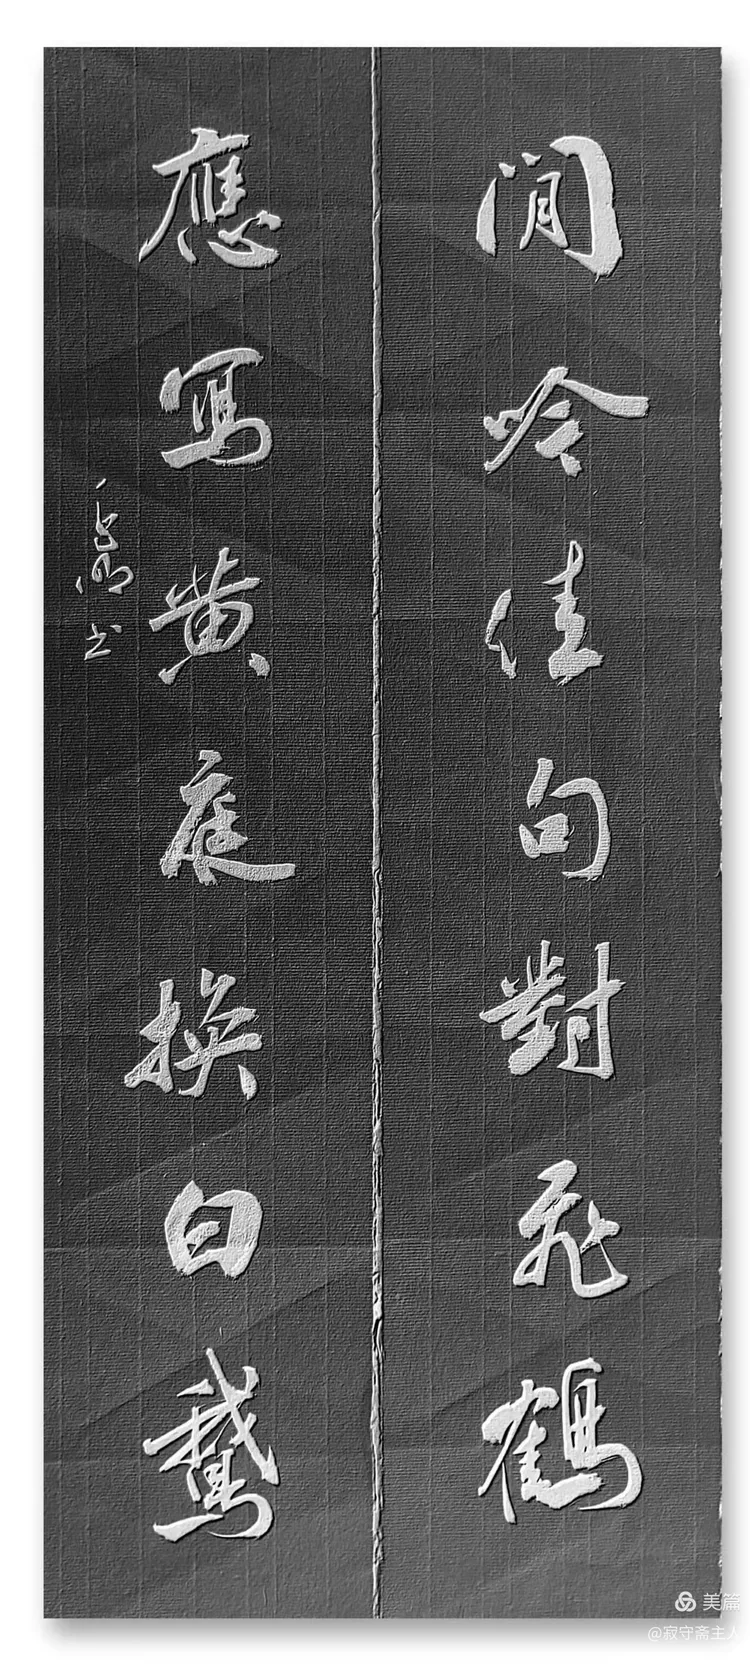 閒吟佳句對飛鶴
應寫黄庭換白鵝
书
美篇
@寂守斋主人